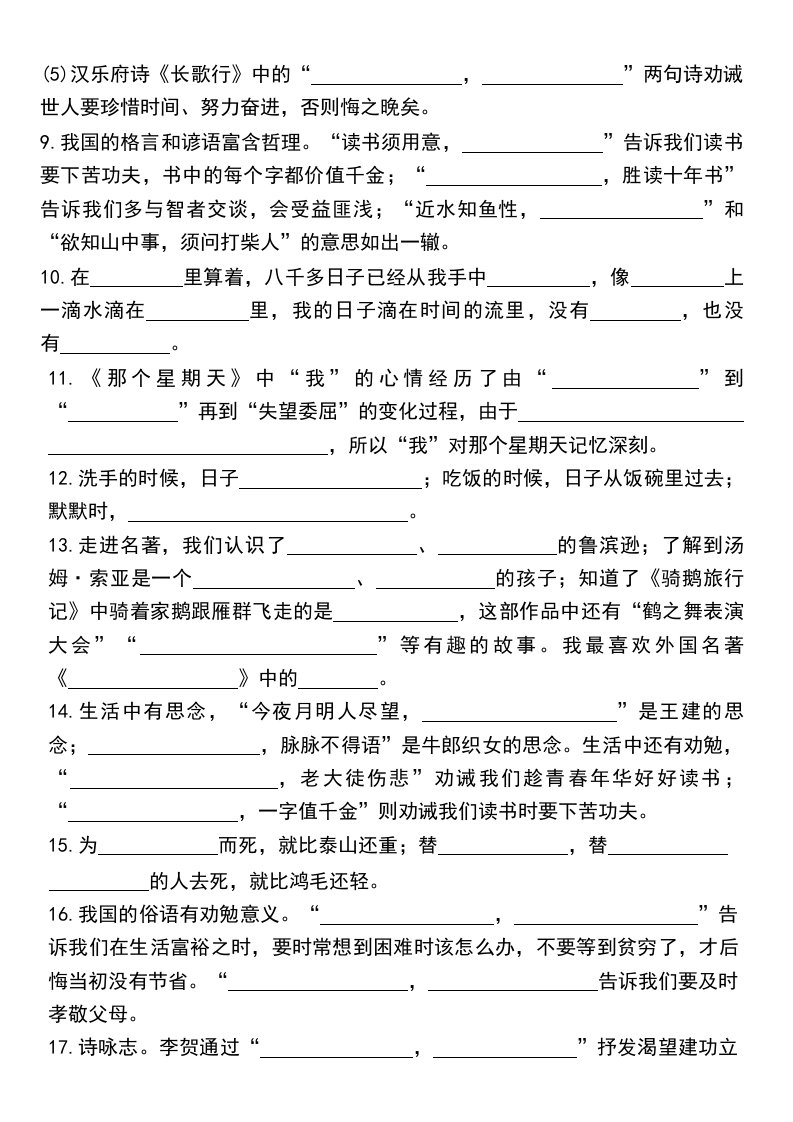 (5)汉乐府诗《长歌行》中的“______，______”两句诗劝诫
世人要珍惜时间、努力奋进，否则悔之晚矣。
9.我国的格言和谚语富含哲理。“读书须用意，______”告诉我们读书
要下苦功夫，书中的每个字都价值千金；“______，胜读十年书”
告诉我们多与智者交谈，会受益匪浅；“近水知鱼性，______”和
“欲知山中事，须问打柴人”的意思如出一辙。
10.在______里算着，八千多日子已经从我手中______，像______上
一滴水滴在______里，我的日子滴在时间的流里，没有______，也没
有______。
11.《那个星期天》中“我”的心情经历了由“______”到
“______”再到“失望委屈”的变化过程，由于______
______，所以“我”对那个星期天记忆深刻。
12.洗手的时候，日子______；吃饭的时候，日子从饭碗里过去；
默默时，______。
13.走进名著，我们认识了______、______的鲁滨逊；了解到汤
姆·索亚是一个______、______的孩子；知道了《骑鹅旅行
记》中骑着家鹅跟雁群飞走的是______，这部作品中还有“鹤之舞表演
大会”“______”等有趣的故事。我最喜欢外国名著
《______》中的______。
14.生活中有思念，“今夜月明人尽望，______”是王建的思
念；______，脉脉不得语”是牛郎织女的思念。生活中还有劝勉，
“______，老大徒伤悲”劝诫我们趁青春年华好好读书；
“______，一字值千金”则劝诫我们读书时要下苦功夫。
15.为______而死，就比泰山还重；替______，替______
______的人去死，就比鸿毛还轻。
16.我国的俗语有劝勉意义。“______，______”告
诉我们在生活富裕之时，要时常想到困难时该怎么办，不要等到贫穷了，才后
悔当初没有节省。“______，______告诉我们要及时
孝敬父母。
17.诗咏志。李贺通过“______，______”抒发渴望建功立